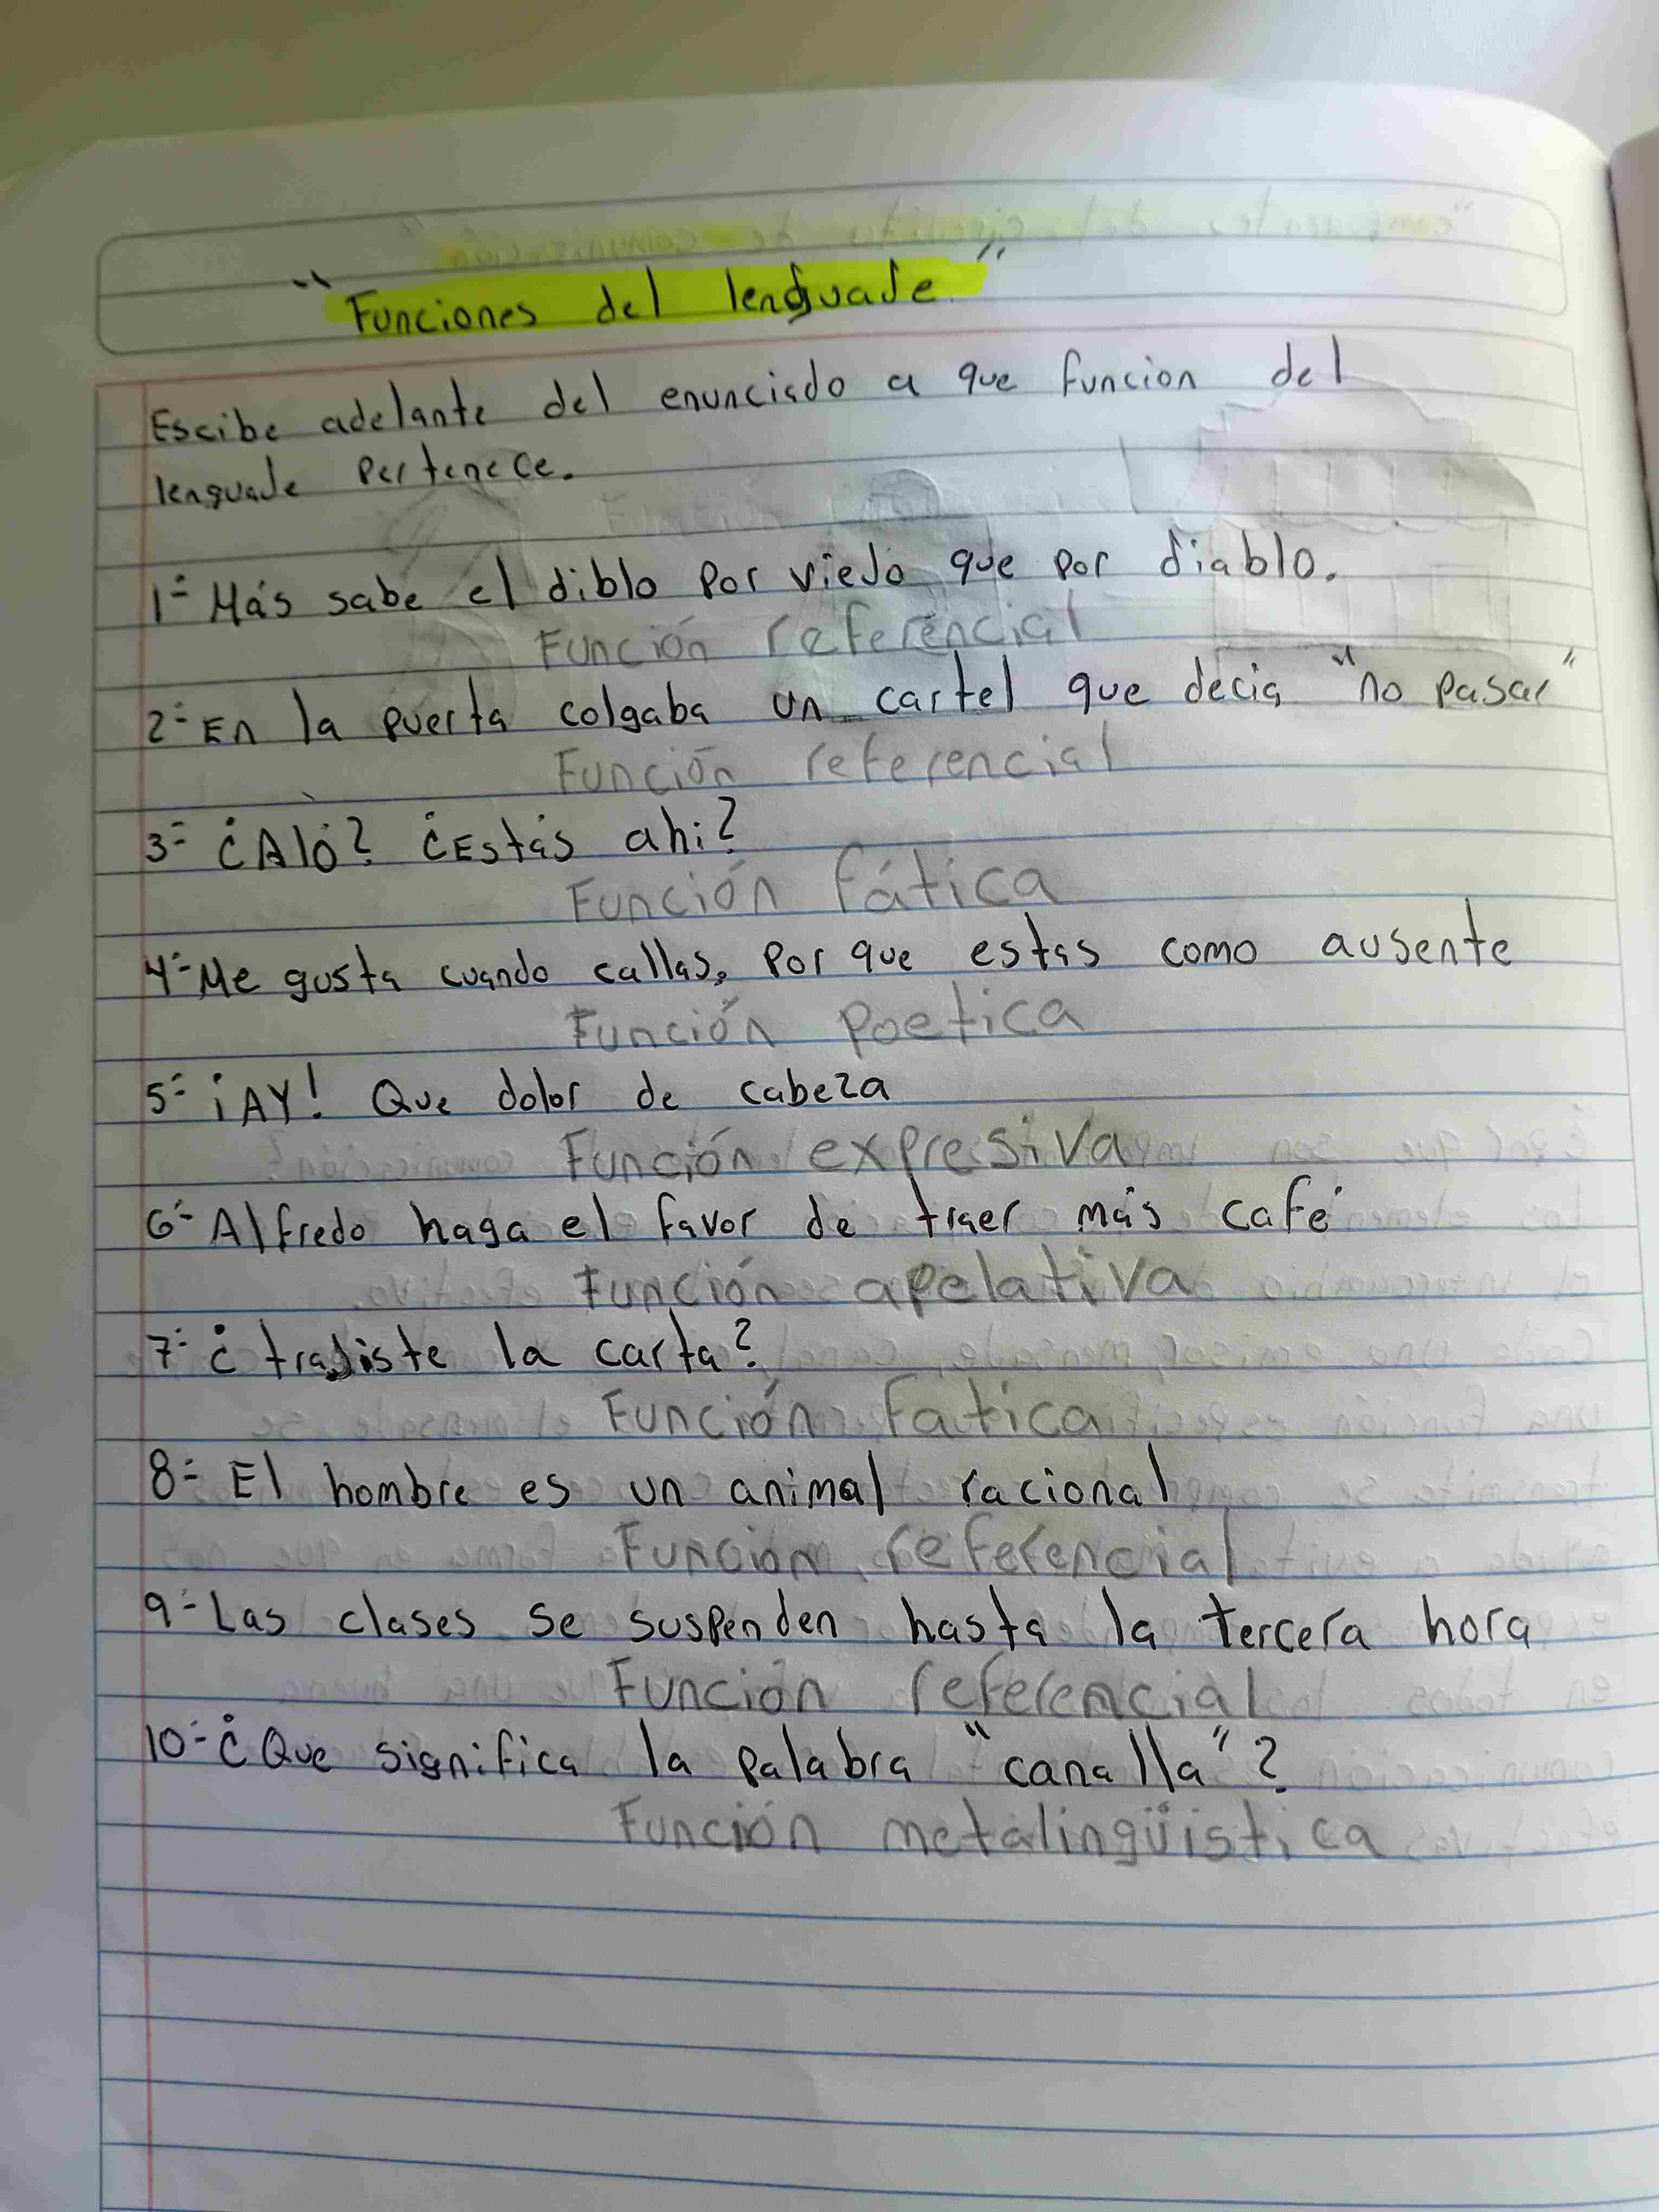 "Funciones del lenguaje"
Escibe adelante del enunciado a que funcion del
lenguaje pertenece.
1- Más sabe el diblo por viejo que por diablo.
Función referencial
2- En la puerta colgaba un cartel que decia "no pasar"
Función referencial
3- ¿Aló? ¿Estás ahi?
Función fática
4- Me gusta cuando callas, por que estas como ausente
Función poetica
5- ¡AY! Que dolor de cabeza
Función expresiva
6- Alfredo haga el favor de traer más café
Función apelativa
7- ¿trajiste la carta?
Función fatica
8- El hombre es un animal racional
Función referencial
9- Las clases se suspenden hasta la tercera hora
Función referencial
10- ¿Que significa la palabra "canalla"?
Función metalingüistica